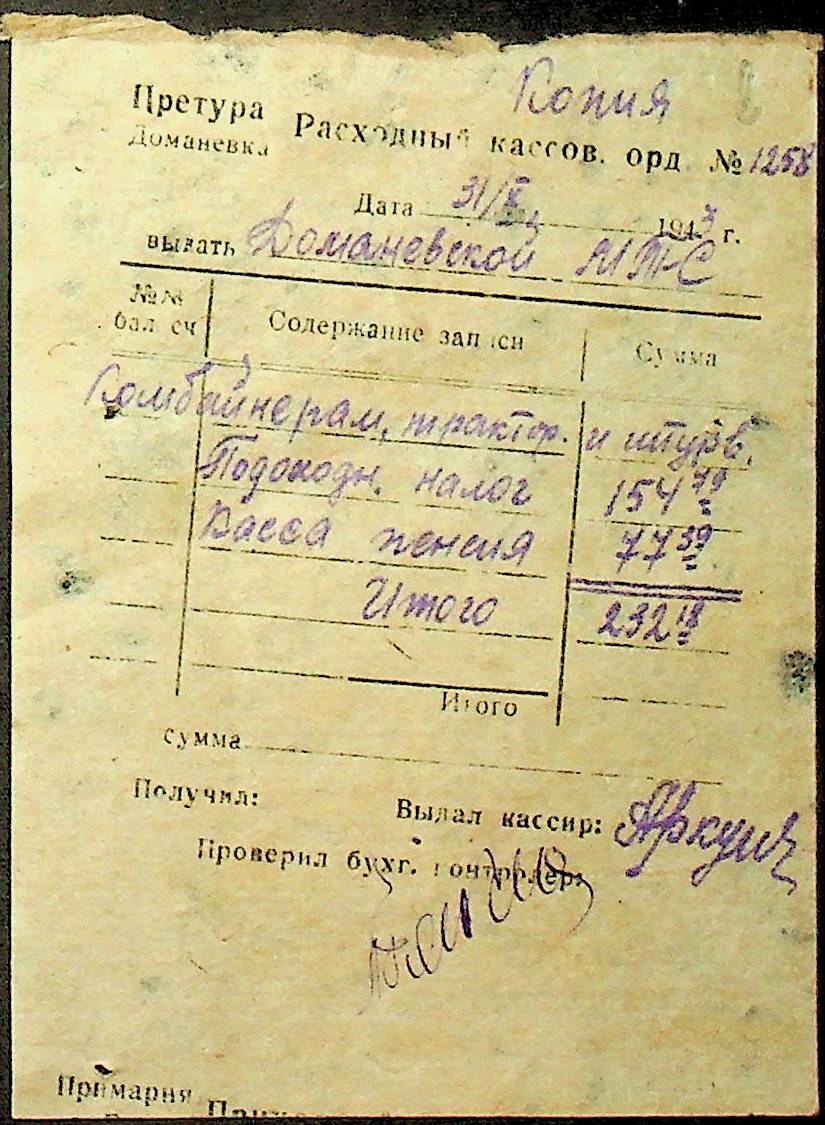 Копия
Претура Расходный кассов. орд № 1258
Доманевка
Дата 31/X 1943 г.
выдать Доманевской МТС
№№ бал. сч Содержание записи Сумма
Комбайнерам, трактор. и штурв.
Подоходн. налог 154 79
Касса пенсия 77 39
Итого 232 18
Итого
сумма
Получил: Выдал кассир:
Проверил бухг. контролер:
Примария